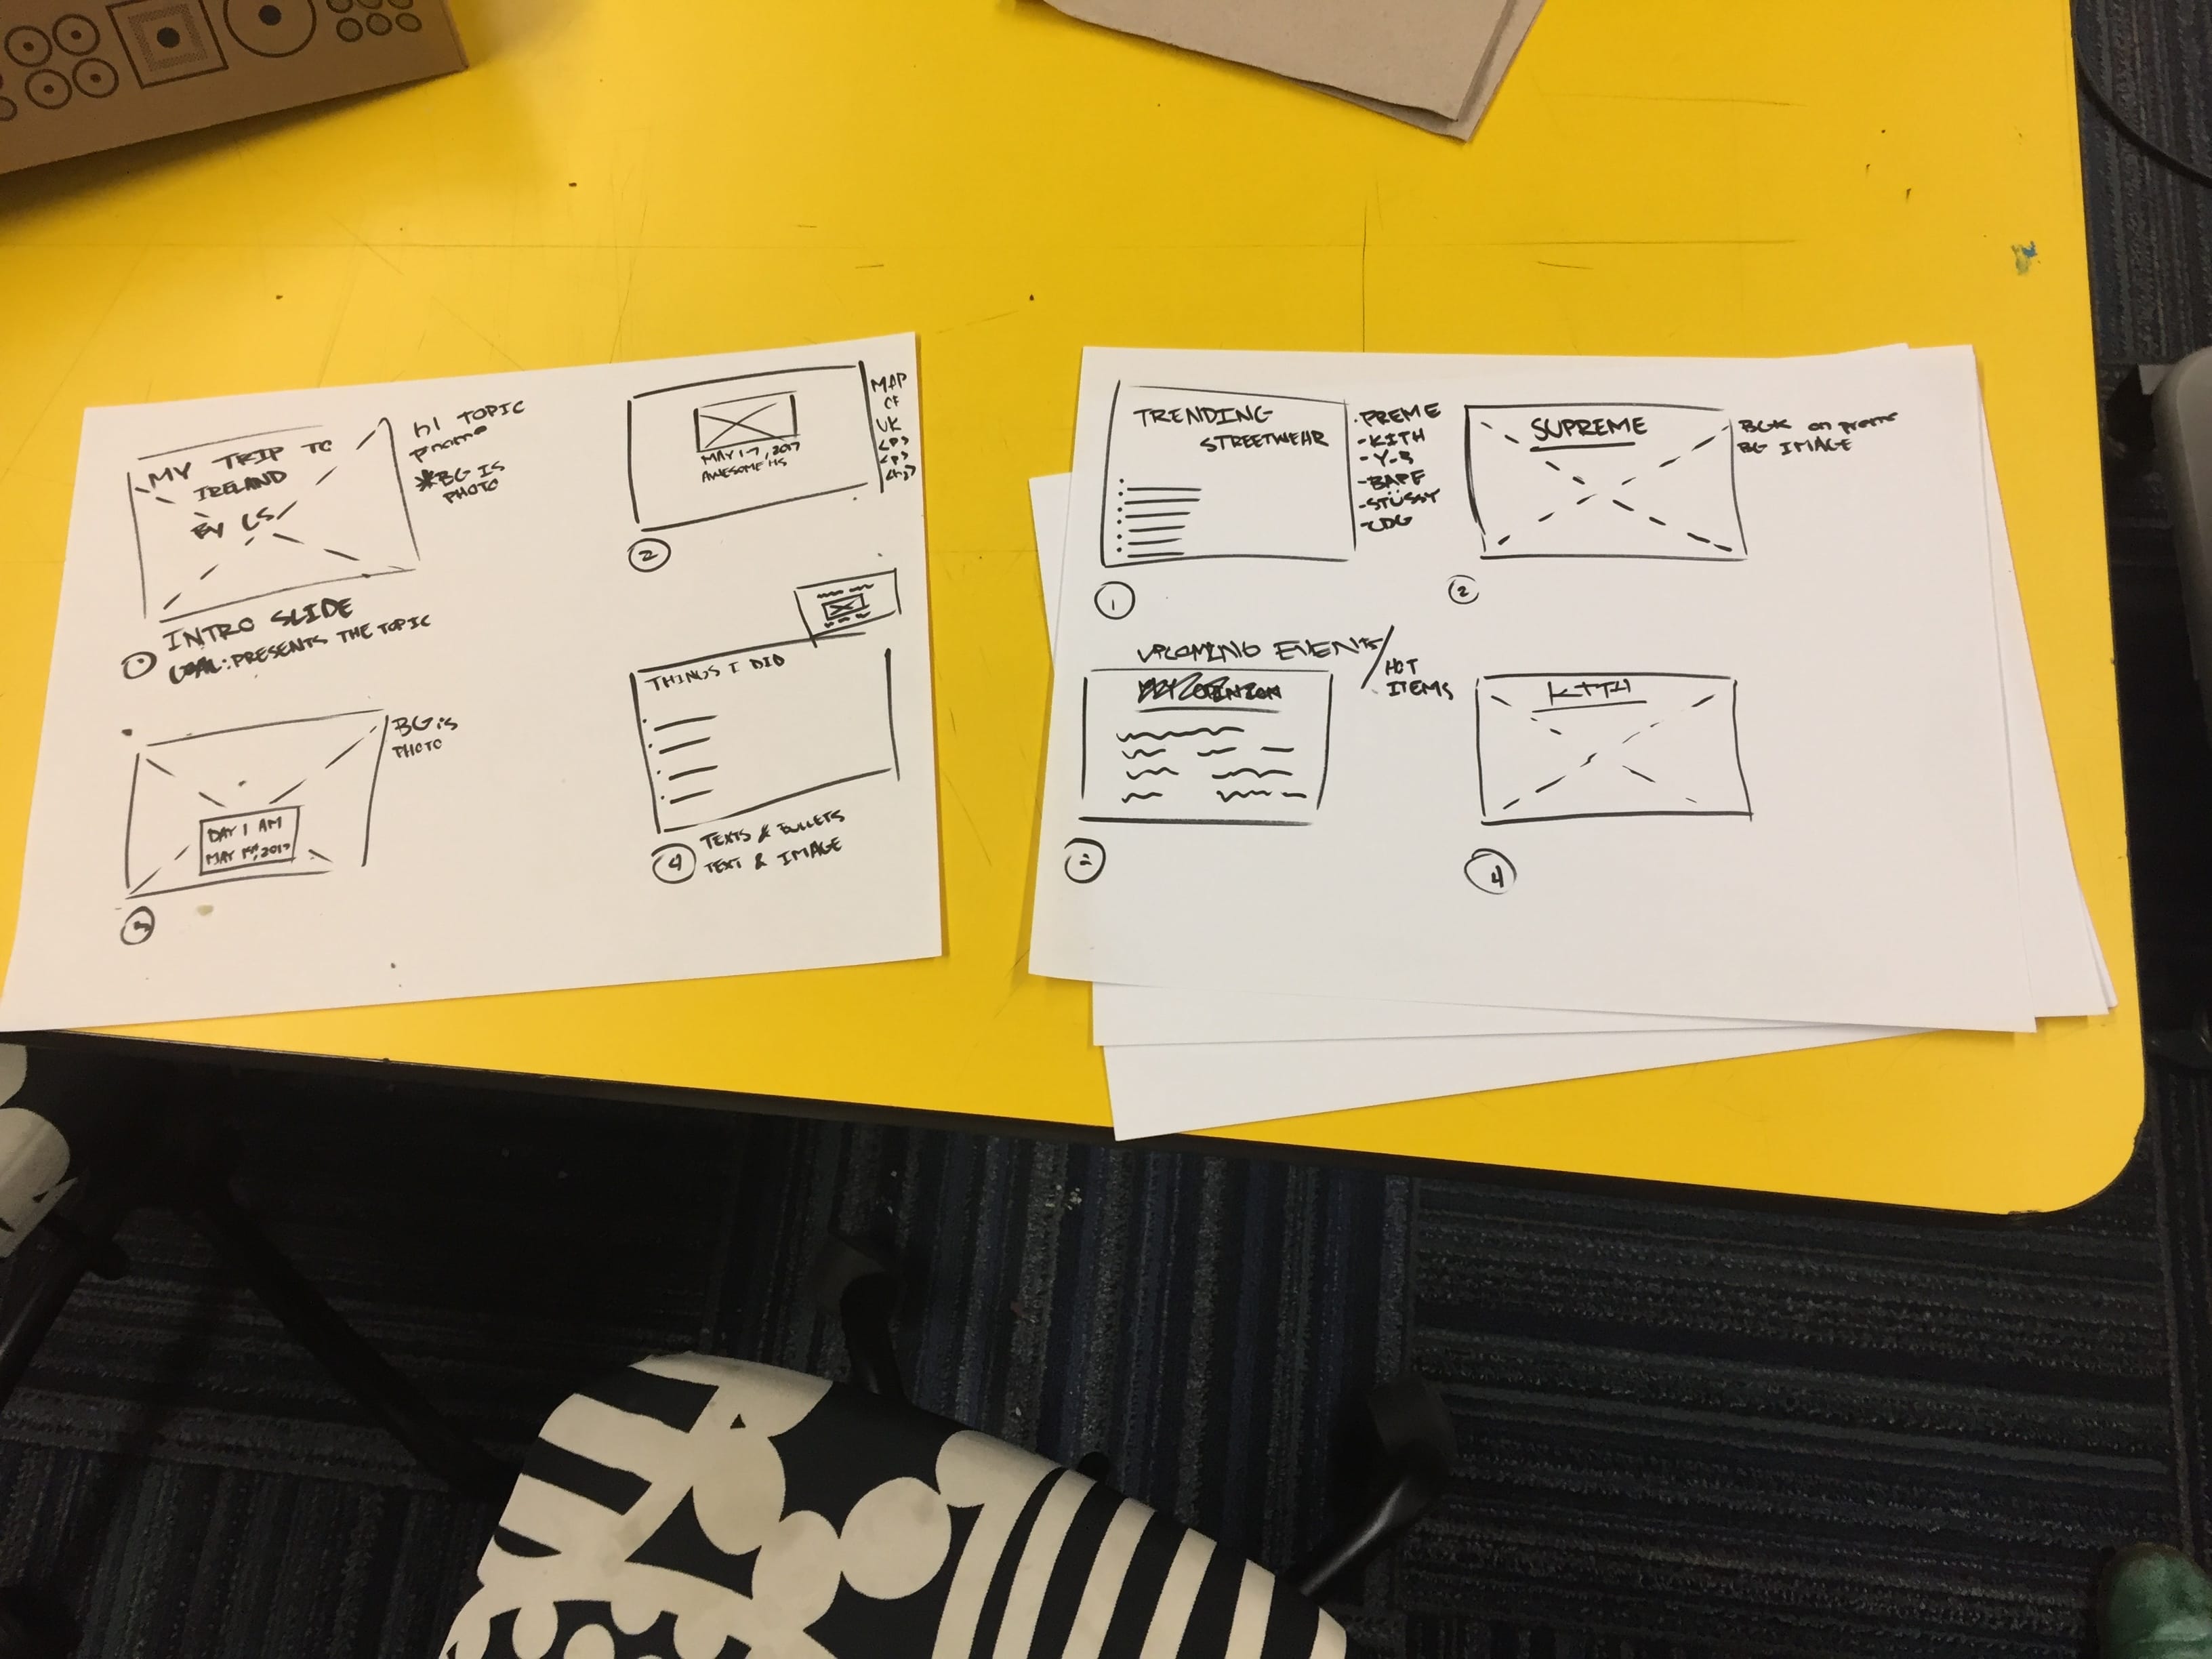 MY TRIP TO
IRELAND
BY CS
h1 TOPIC
pname
*BG IS
PHOTO
1 INTRO SLIDE
GOAL: PRESENTS THE TOPIC
MAY 1-7, 2017
AWESOME HS
MAP
OF
UK
<p>
<p>
2
DAY 1 AM
MAY 1st, 2017
BG is
PHOTO
3
THINGS I DID
4 TEXTS & BULLETS
TEXT & IMAGE
TRENDING
STREETWEAR
·PREME
-KITH
-Y-3
-BAPE
-STÜSSY
-CDG
1
SUPREME
BG IMAGE
2
UPCOMING EVENTS/
HOT
ITEMS
KITH
4